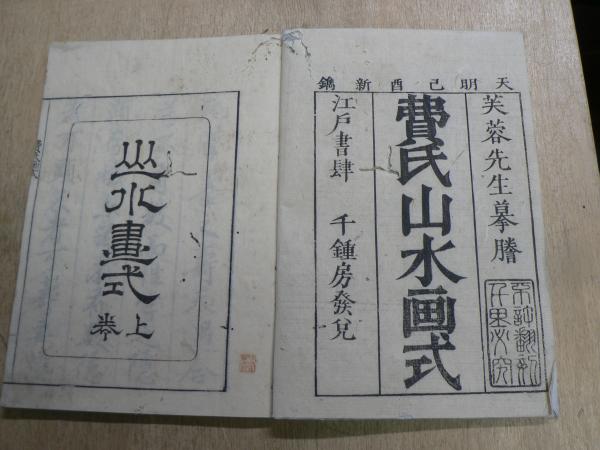 天明己酉新鐫
芙蓉先生摹謄
費氏山水画式
江戸書肆 千鍾房發兌
山水畫式
上卷